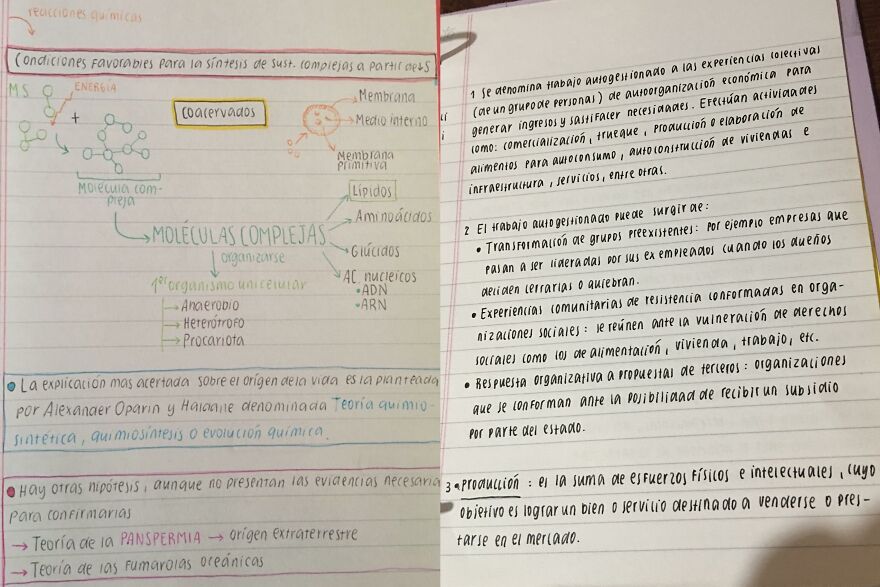 reacciones químicas
Condiciones favorables para la síntesis de sust. complejas a partir de +S
MS
ENERGÍA
+
coacervados
Membrana
Medio interno
Membrana
primitiva
Molécula com-
pleja
MOLÉCULAS COMPLEJAS
Lípidos
Aminoácidos
Glúcidos
AC. nucleicos
• ADN
• ARN
organizarse
1er organismo unicelular
→ Anaerobio
→ Heterótrofo
→ Procariota
• La explicación mas acertada sobre el orígen de la vida es la planteada
por Alexander Oparin y Haldane denominada Teoría quimio-
sintética, quimiosíntesis o evolución química.
• Hay otras hipótesis, aunque no presentan las evidencias necesaria
para confirmarlas
→ Teoría de la PANSPERMIA → orígen extraterrestre
→ Teoría de las fumarolas oceánicas
1 Se denomina trabajo autogestionado a las experiencias colectivas
(de un grupo de personas) de autoorganización económica para
generar ingresos y sastifacer necesidades. Efectúan actividades
como: comercialización, trueque, producción o elaboración de
alimentos para autoconsumo, autoconstrucción de viviendas e
infraestructura, servicios, entre otras.
2 El trabajo autogestionado puede surgir de:
• Transformación de grupos preexistentes: por ejemplo empresas que
pasan a ser lideradas por sus ex empleados cuando los dueños
deciden cerrarlas o quiebran.
• Experiencias comunitarias de resistencia conformadas en orga-
nizaciones sociales: se reúnen ante la vulneración de derechos
sociales como los de alimentación, vivienda, trabajo, etc.
• Respuesta organizativa a propuestas de terceros: organizaciones
que se conforman ante la posibilidad de recibir un subsidio
por parte del estado.
3 • producción: es la suma de esfuerzos físicos e intelectuales, cuyo
objetivo es lograr un bien o servicio destinado a venderse o pres-
tarse en el mercado.